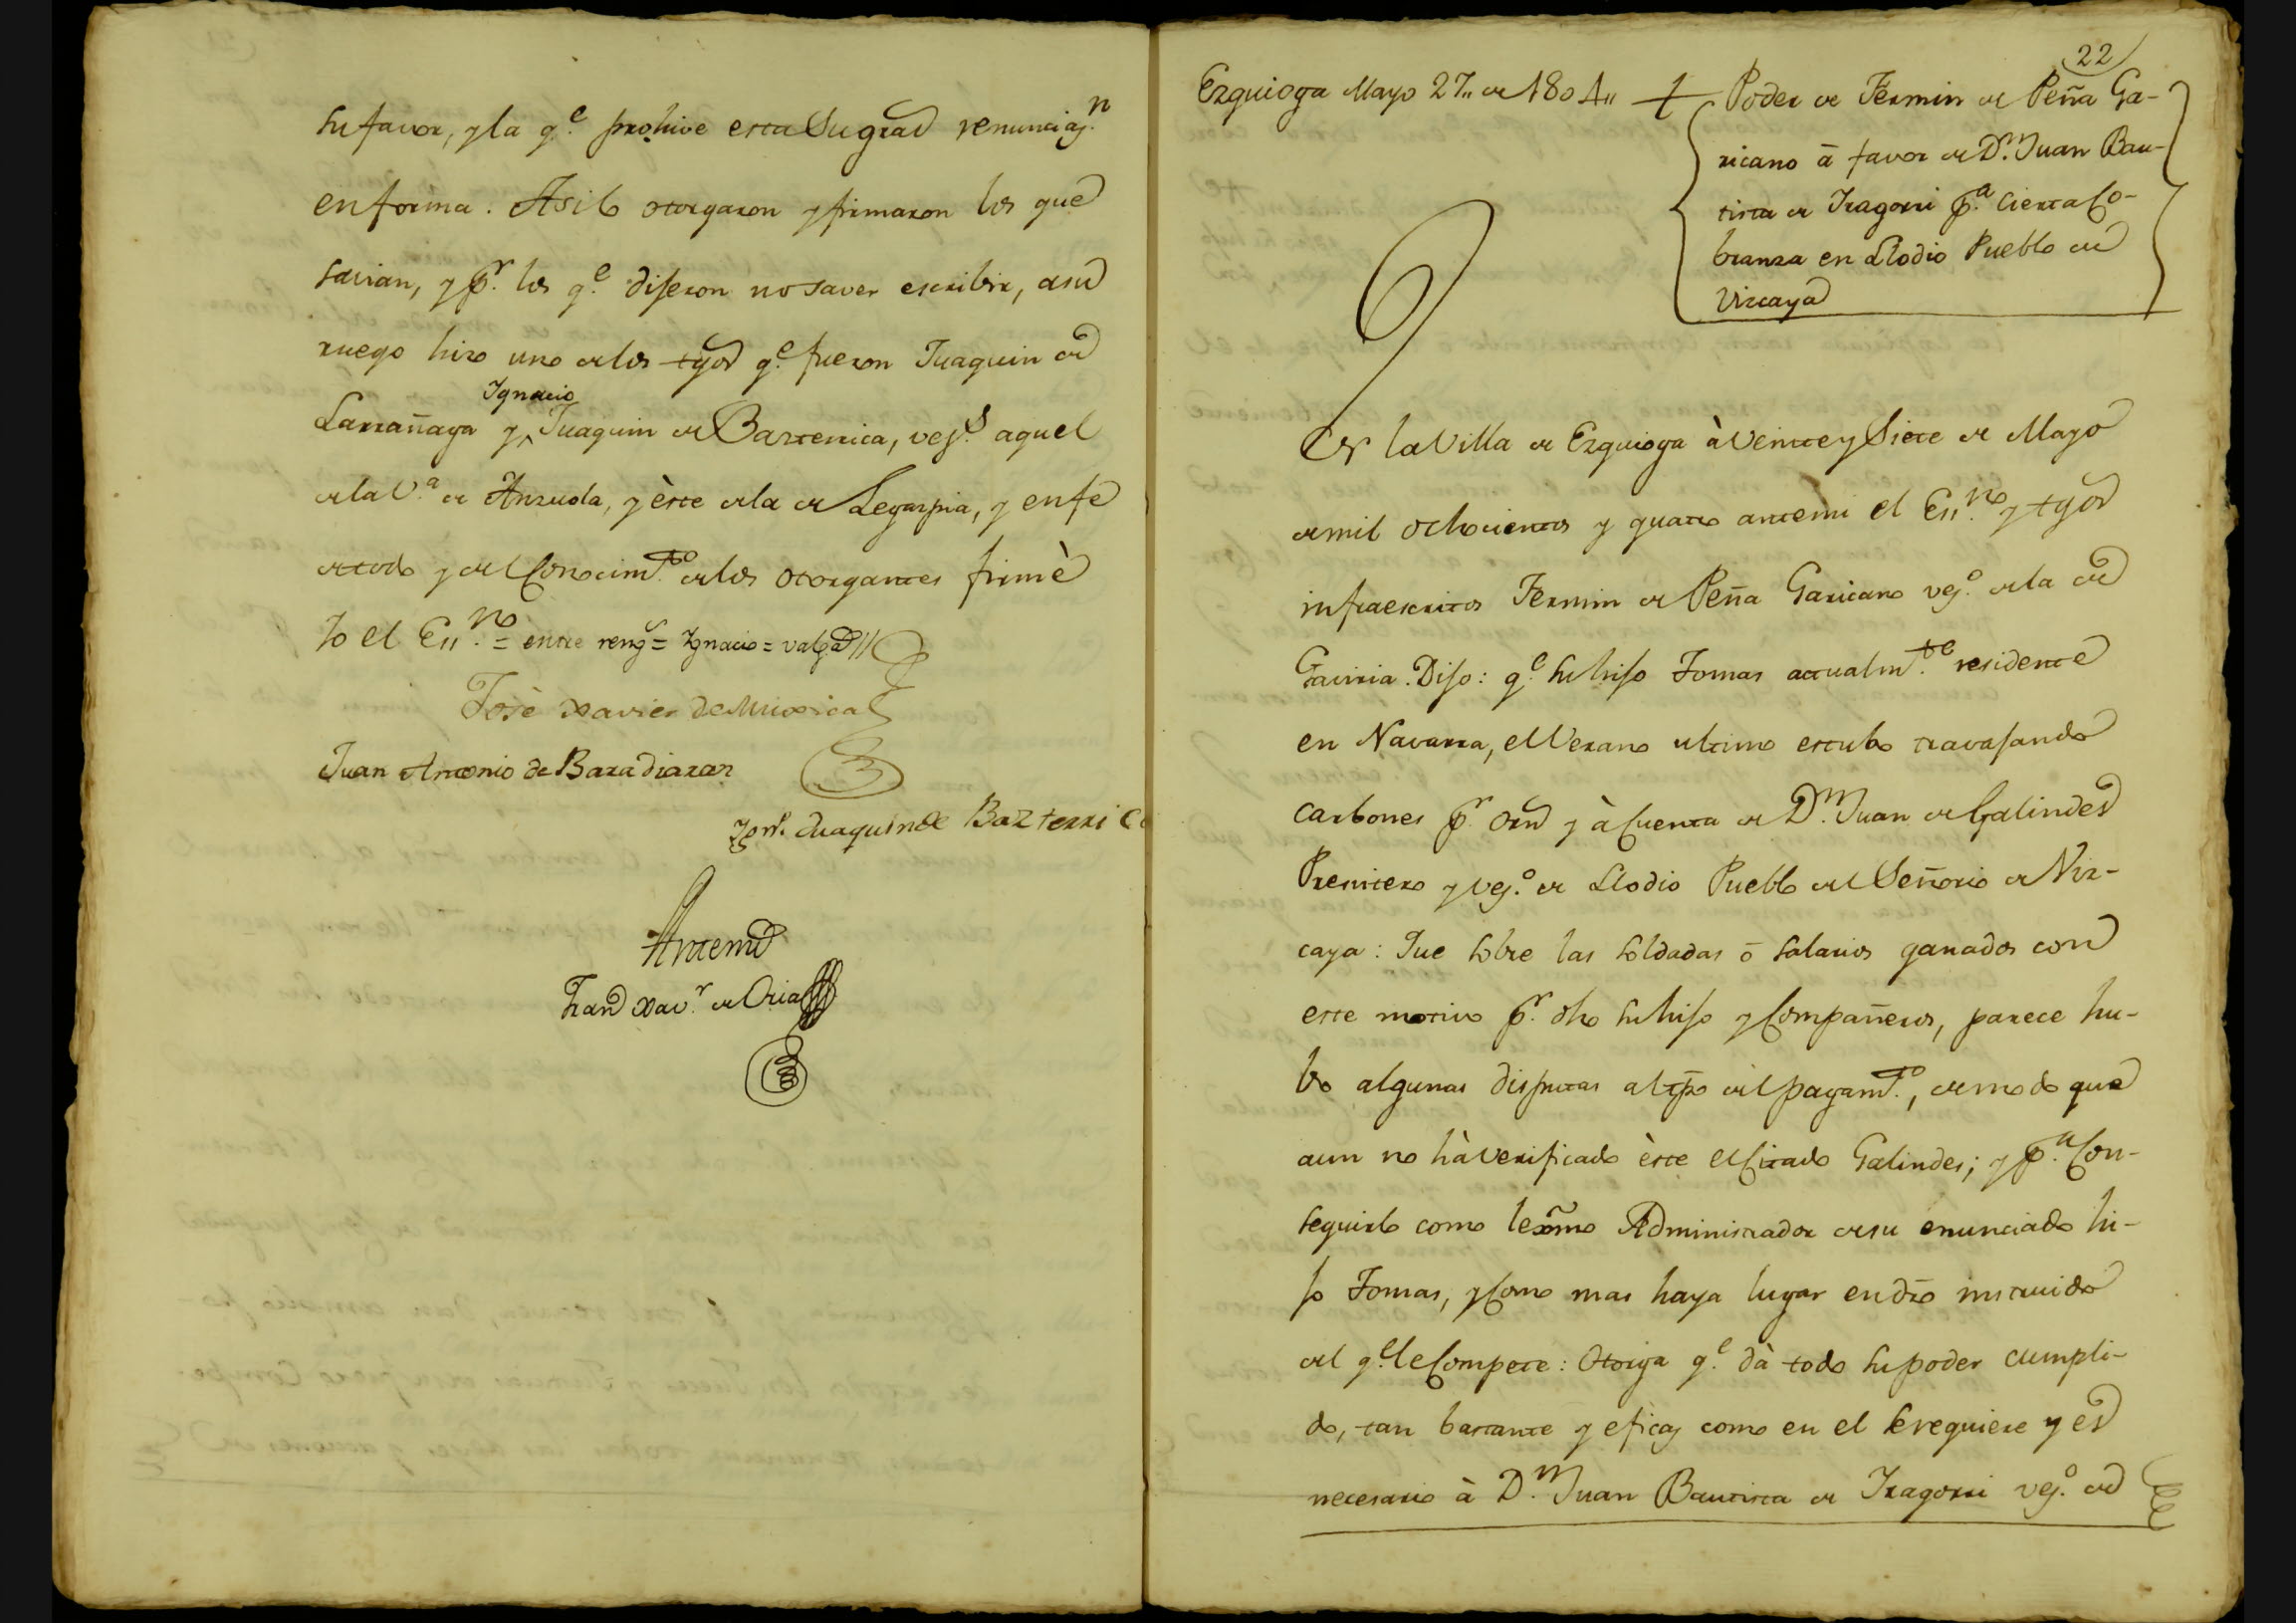 su favor, y la q.e prohive esta su gral renunciaz.n
en forma. Asilo otorgaron y firmaron los que
savian, y p.r los q.e dijeron no saver escribir, a su
ruego hizo uno de los tgos q.e fueron Juaquin de
Ignacio
Larrañaga y ^ Juaquin de Bazterrica, vez.s aquel
de la V.a de Anzuola, y èste de la de Legazpia, y en fe
de todo y del Conocim.to de los otorgantes firmè
Yo el Es.no = entre reng.s = Ygnacio = valga //
Josè Xavier de Muxica
Juan Antonio de Baradiaran
Ygn.o Juaquin de Bazterrica
Antemi
Fran Xav.r de Oria
22
Ezquioga Mayo 27,, de 1804,,
Poder de Fermin de Peña Ga-
ricano â favor de D.n Juan Bau-
tista de Yragorri p.a cierta Co-
branza en Llodio Pueblo de
Vizcaya
En la Villa de Ezquioga à Veinte y Siete de Mayo
de mil ochocientos y quatro antemi el Es.no y tgos
infraescritos Fermin de Peña Garicano vez.o de la de
Gaviria. Dijo: q.e su hijo Tomas actualm.te residente
en Navarra, el Verano ultimo estubo travajando
carbones p.r orn y à Cuenta de D.n Juan de Galindes
Premitero y vez.o de Llodio Pueblo del Señorio de Viz-
caya: Que sobre las soldadas ô salarios ganados con
este motivo p.r dho su hijo y Compañeros, parece hu-
bo algunas disputas al tpo del pagam.to, de modo que
aun no hà verificado èste el Citado Galindes; y p.a Con-
seguirlo como lexmo Administrador de su enunciado hi-
jo Tomas, y Como mas haya lugar en dro instruido
del q.e le Compete: Otorga q.e dà todo su poder cumpli-
do, tan bastante y eficaz como en el se requiere y es
necesario à D.n Juan Bautista de Yragorri vez.o de